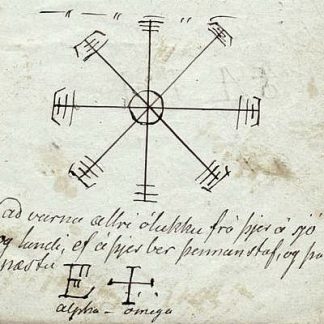 ad varna allri olukku frá þjer á sjó
og landi, ef á þjer ber þennan staf, og þa
næstu
alpha - omega